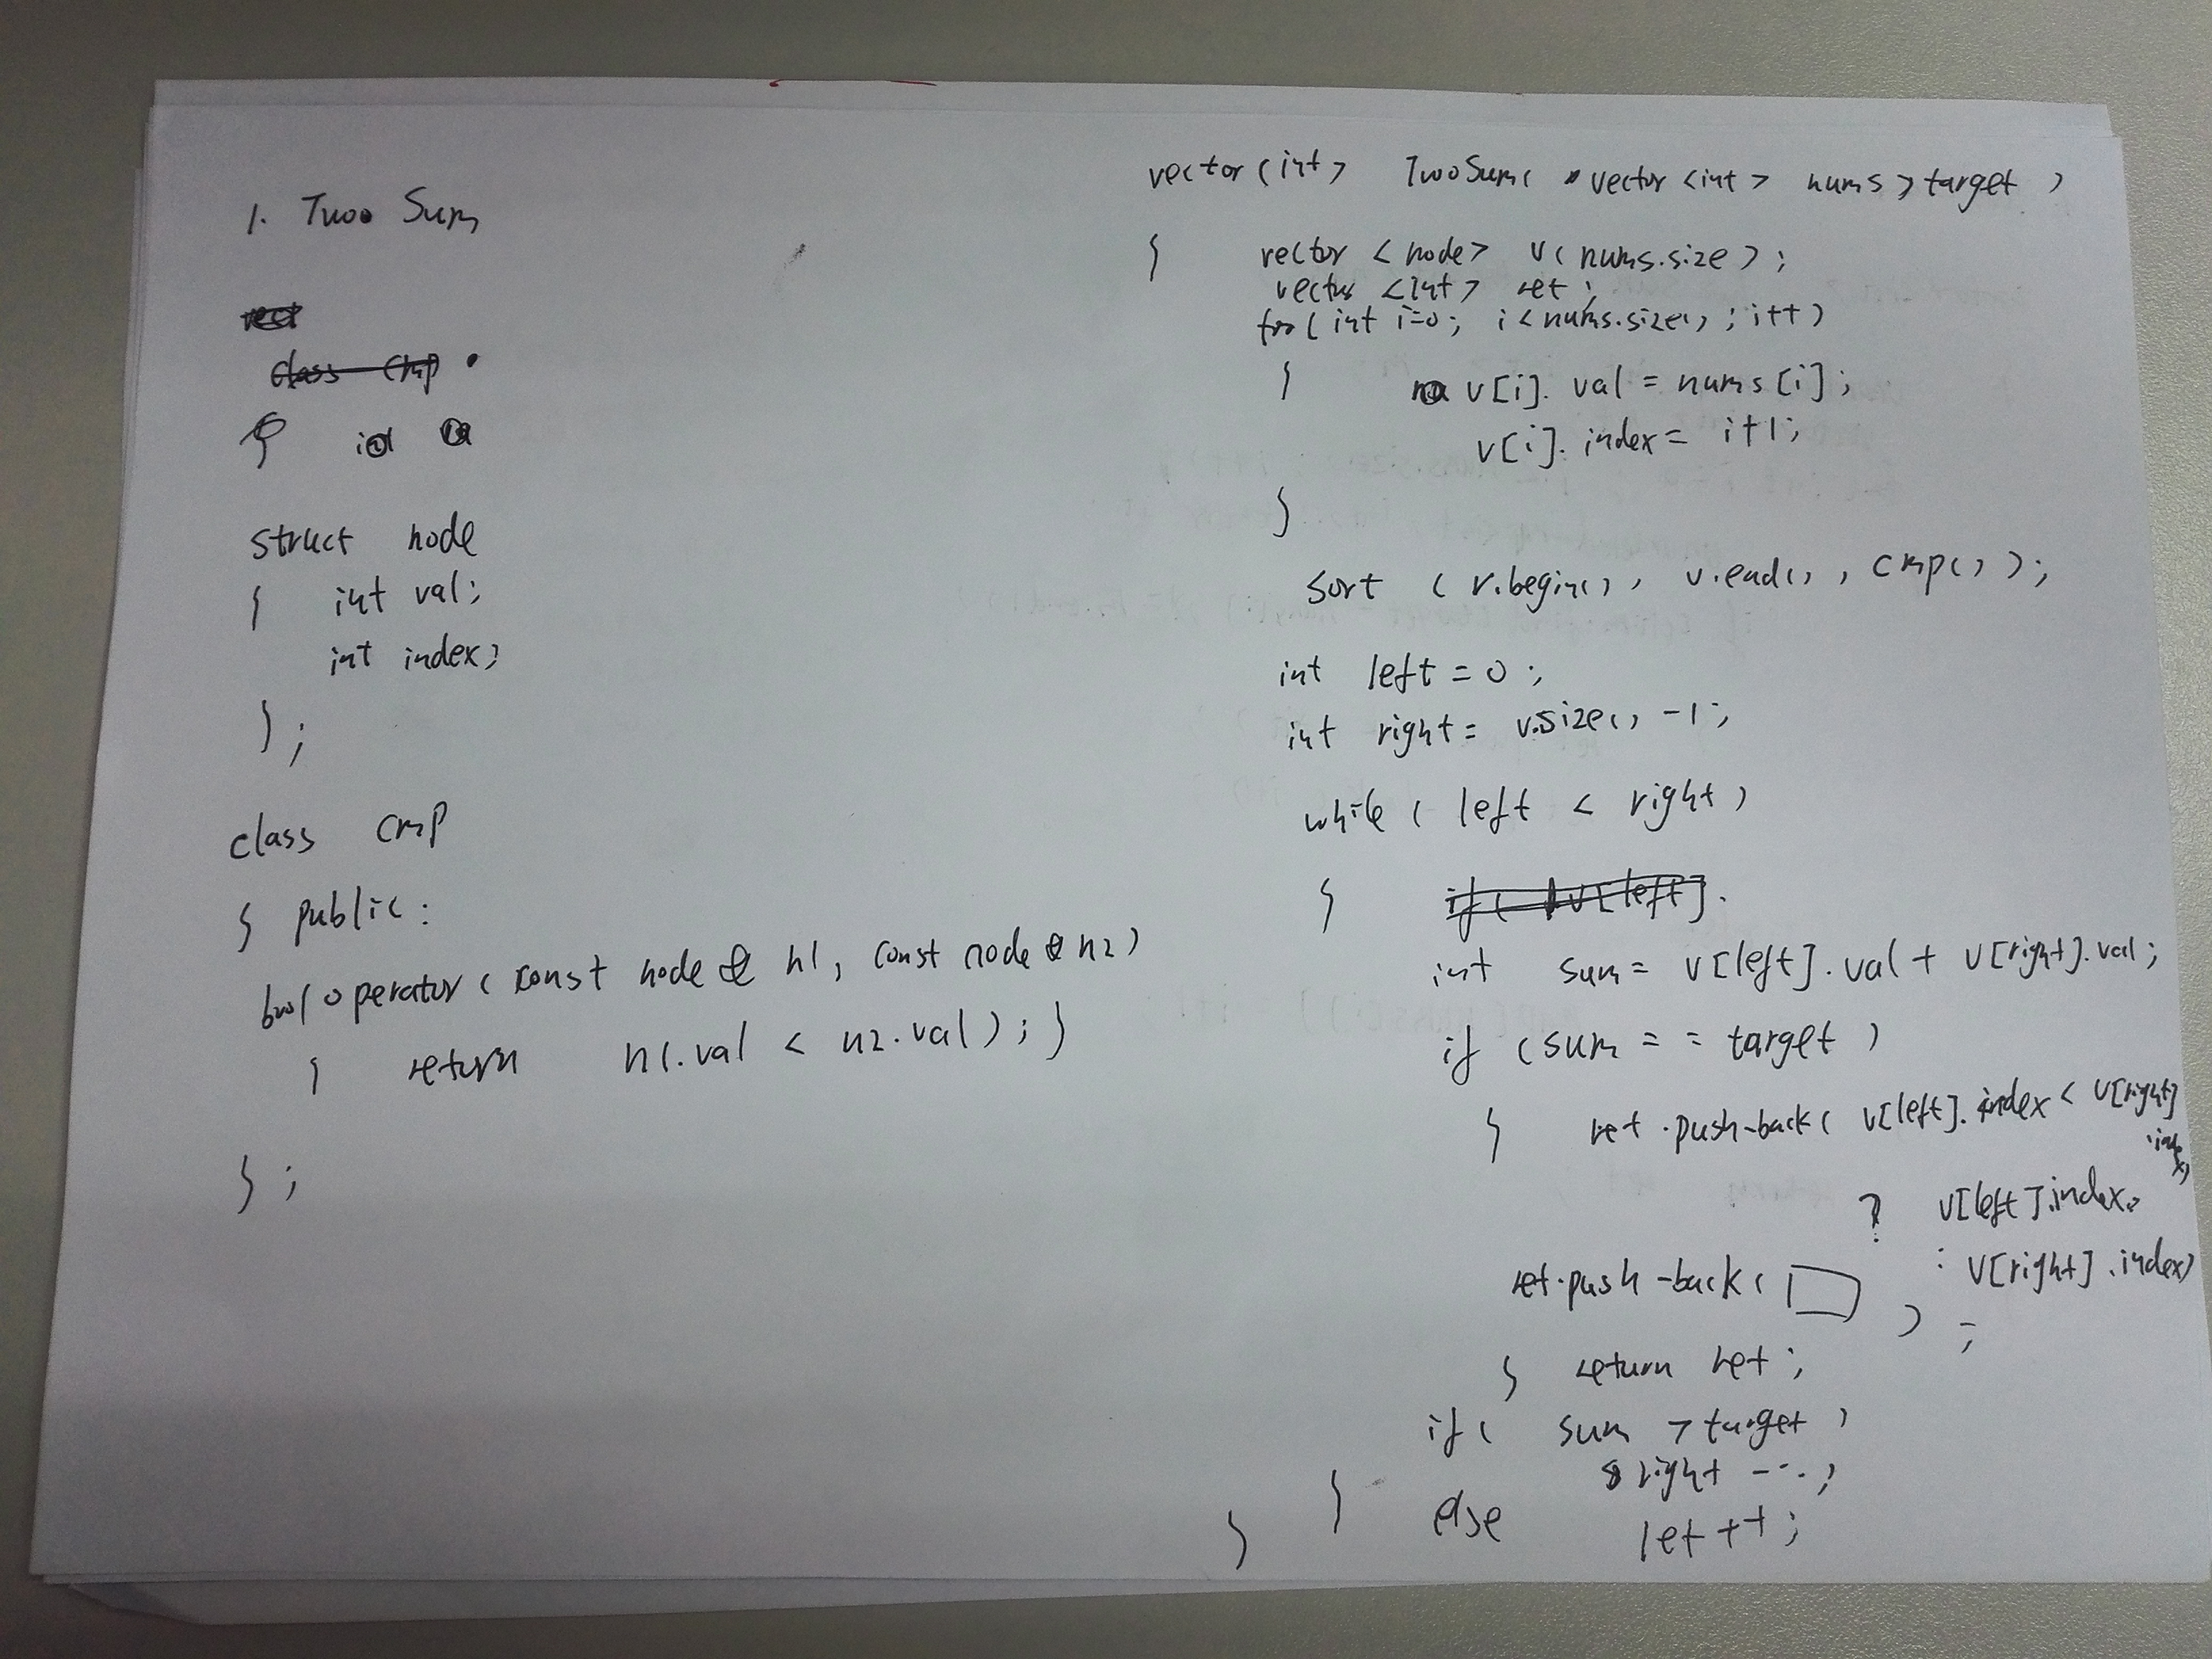 1. Two Sum
struct node
{ int val;
int index;
};
class cmp
{ public:
bool operator( const node & n1, const node & n2)
{ return n1.val < n2.val); }
};
vector(int> TwoSum( vector<int> nums, target )
{ vector <node> v(nums.size);
vector <int> ret;
for( int i=0; i<nums.size(); i++)
{ v[i]. val = nums[i];
v[i]. index= i+1;
}
sort (v.begin(), v.end(), cmp());
int left = 0;
int right = v.size() -1;
while ( left < right )
{ if( v[left].
int sum= v[left].val + v[right].val;
if (sum == target )
{ ret.push-back( v[left].index < v[right]
.index)
? v[left].index
: v[right].index)
ret.push-back( );
} return ret;
if( sum > target )
right --;
} else
} let ++;